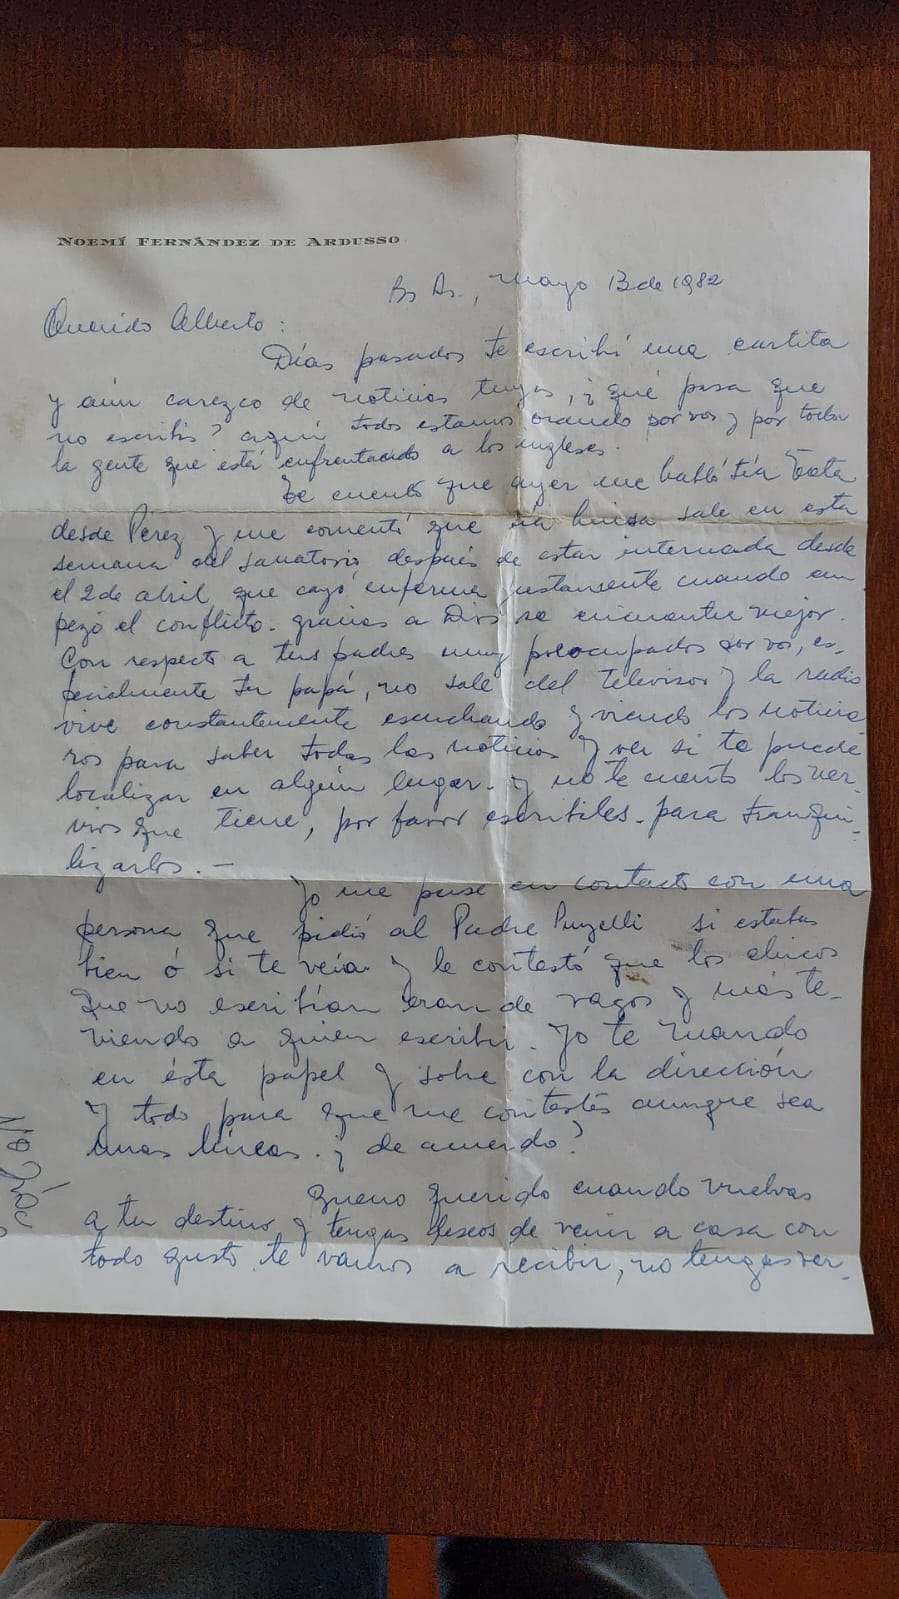 NOEMÍ FERNÁNDEZ DE ARDUSSO
Bs As., Mayo 13 de 1982
Querido Alberto:
Días pasados te escribí una cartita
y aún carezco de noticias tuyas, ¿qué pasa que
no escribís? aquí todos estamos orando por vos y por toda
la gente que está enfrentando a los ingleses.
Te cuento que ayer me habló tía Tota
desde Pérez y me comentó que tía Luisa sale en esta
semana del sanatorio después de estar internada desde
el 2 de abril que cayó enferma justamente cuando em
pezó el conflicto. gracias a Dios se encuentra mejor.
Con respecto a tus padres muy preocupados por vos, es-
pecialmente tu papá, no sale del televisor y la radio
vive constantemente escuchando y viendo los noticie
ros para saber todas las noticias y ver si te puede
localizar en algún lugar. y no te cuento los ner-
vios que tiene, por favor escribiles. para tranqui-
lizarlos. —
Yo me puse en contacto con una
persona que pidió al Padre si estabas
bien ó si te veía y le contestó que los chicos
que no escribían eran de vagos y más te-
niendo a quien escribir. Yo te mando
en ésta papel y sobre con la dirección
y todo para que me contestés aunque sea
unas líneas. ¿de acuerdo?
Bueno querido cuando vuelvas
a tu destino y tengas deseos de venir a casa con
todo gusto te vamos a recibir, no tengas ver-